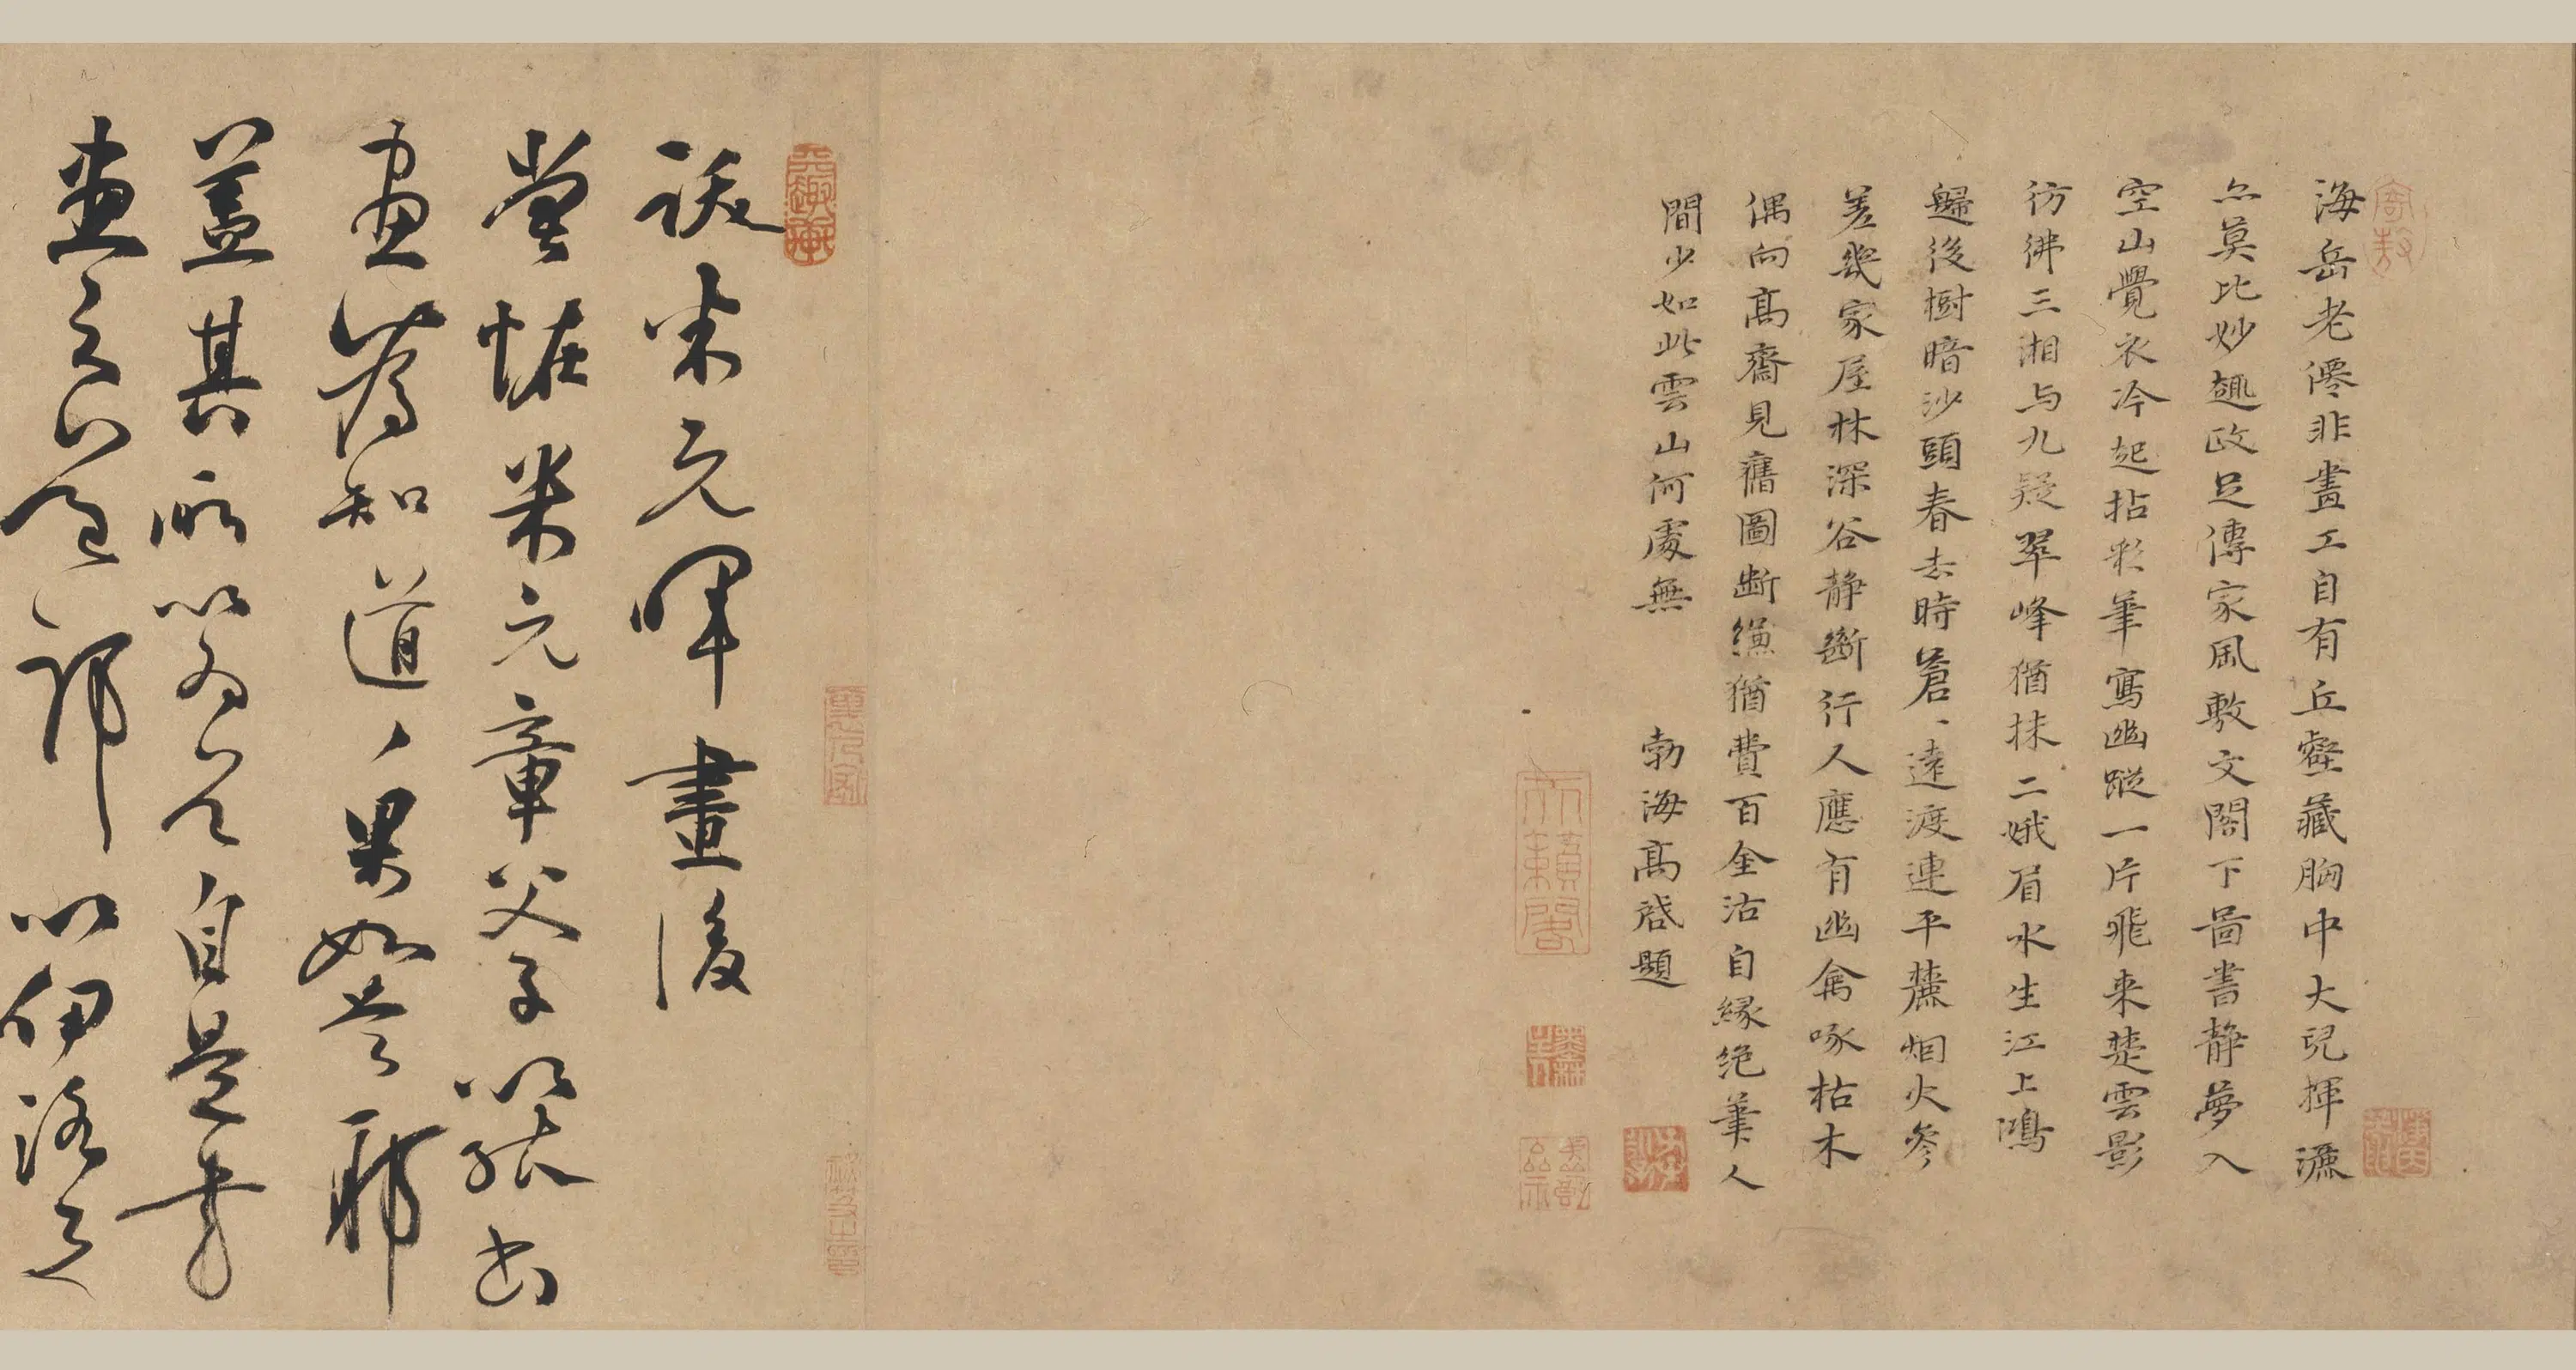 海岳老僊非畫工自有丘壑藏胸中大兒揮灑
亦莫比妙趣政足傳家風敷文閣下圖書静夢入
空山覺衣冷起拈彩筆寫幽蹤一片飛来楚雲影
彷彿三湘与九疑翠峰猶抹二娥眉水生江上鴻
歸後樹暗沙頭春去時蒼、遠渡連平麓烟火參
差幾家屋林深谷静斷行人應有幽禽啄枯木
偶向髙齋見舊圖斷縑猶費百金沽自緣绝筆人
間少如此雲山何處無
勃海髙啓題
天籟閣
跋米元暉畫後
嘗怪米元章父子以能書
畫為知道、果如是耶
蓋其所以為人自是書
畫之